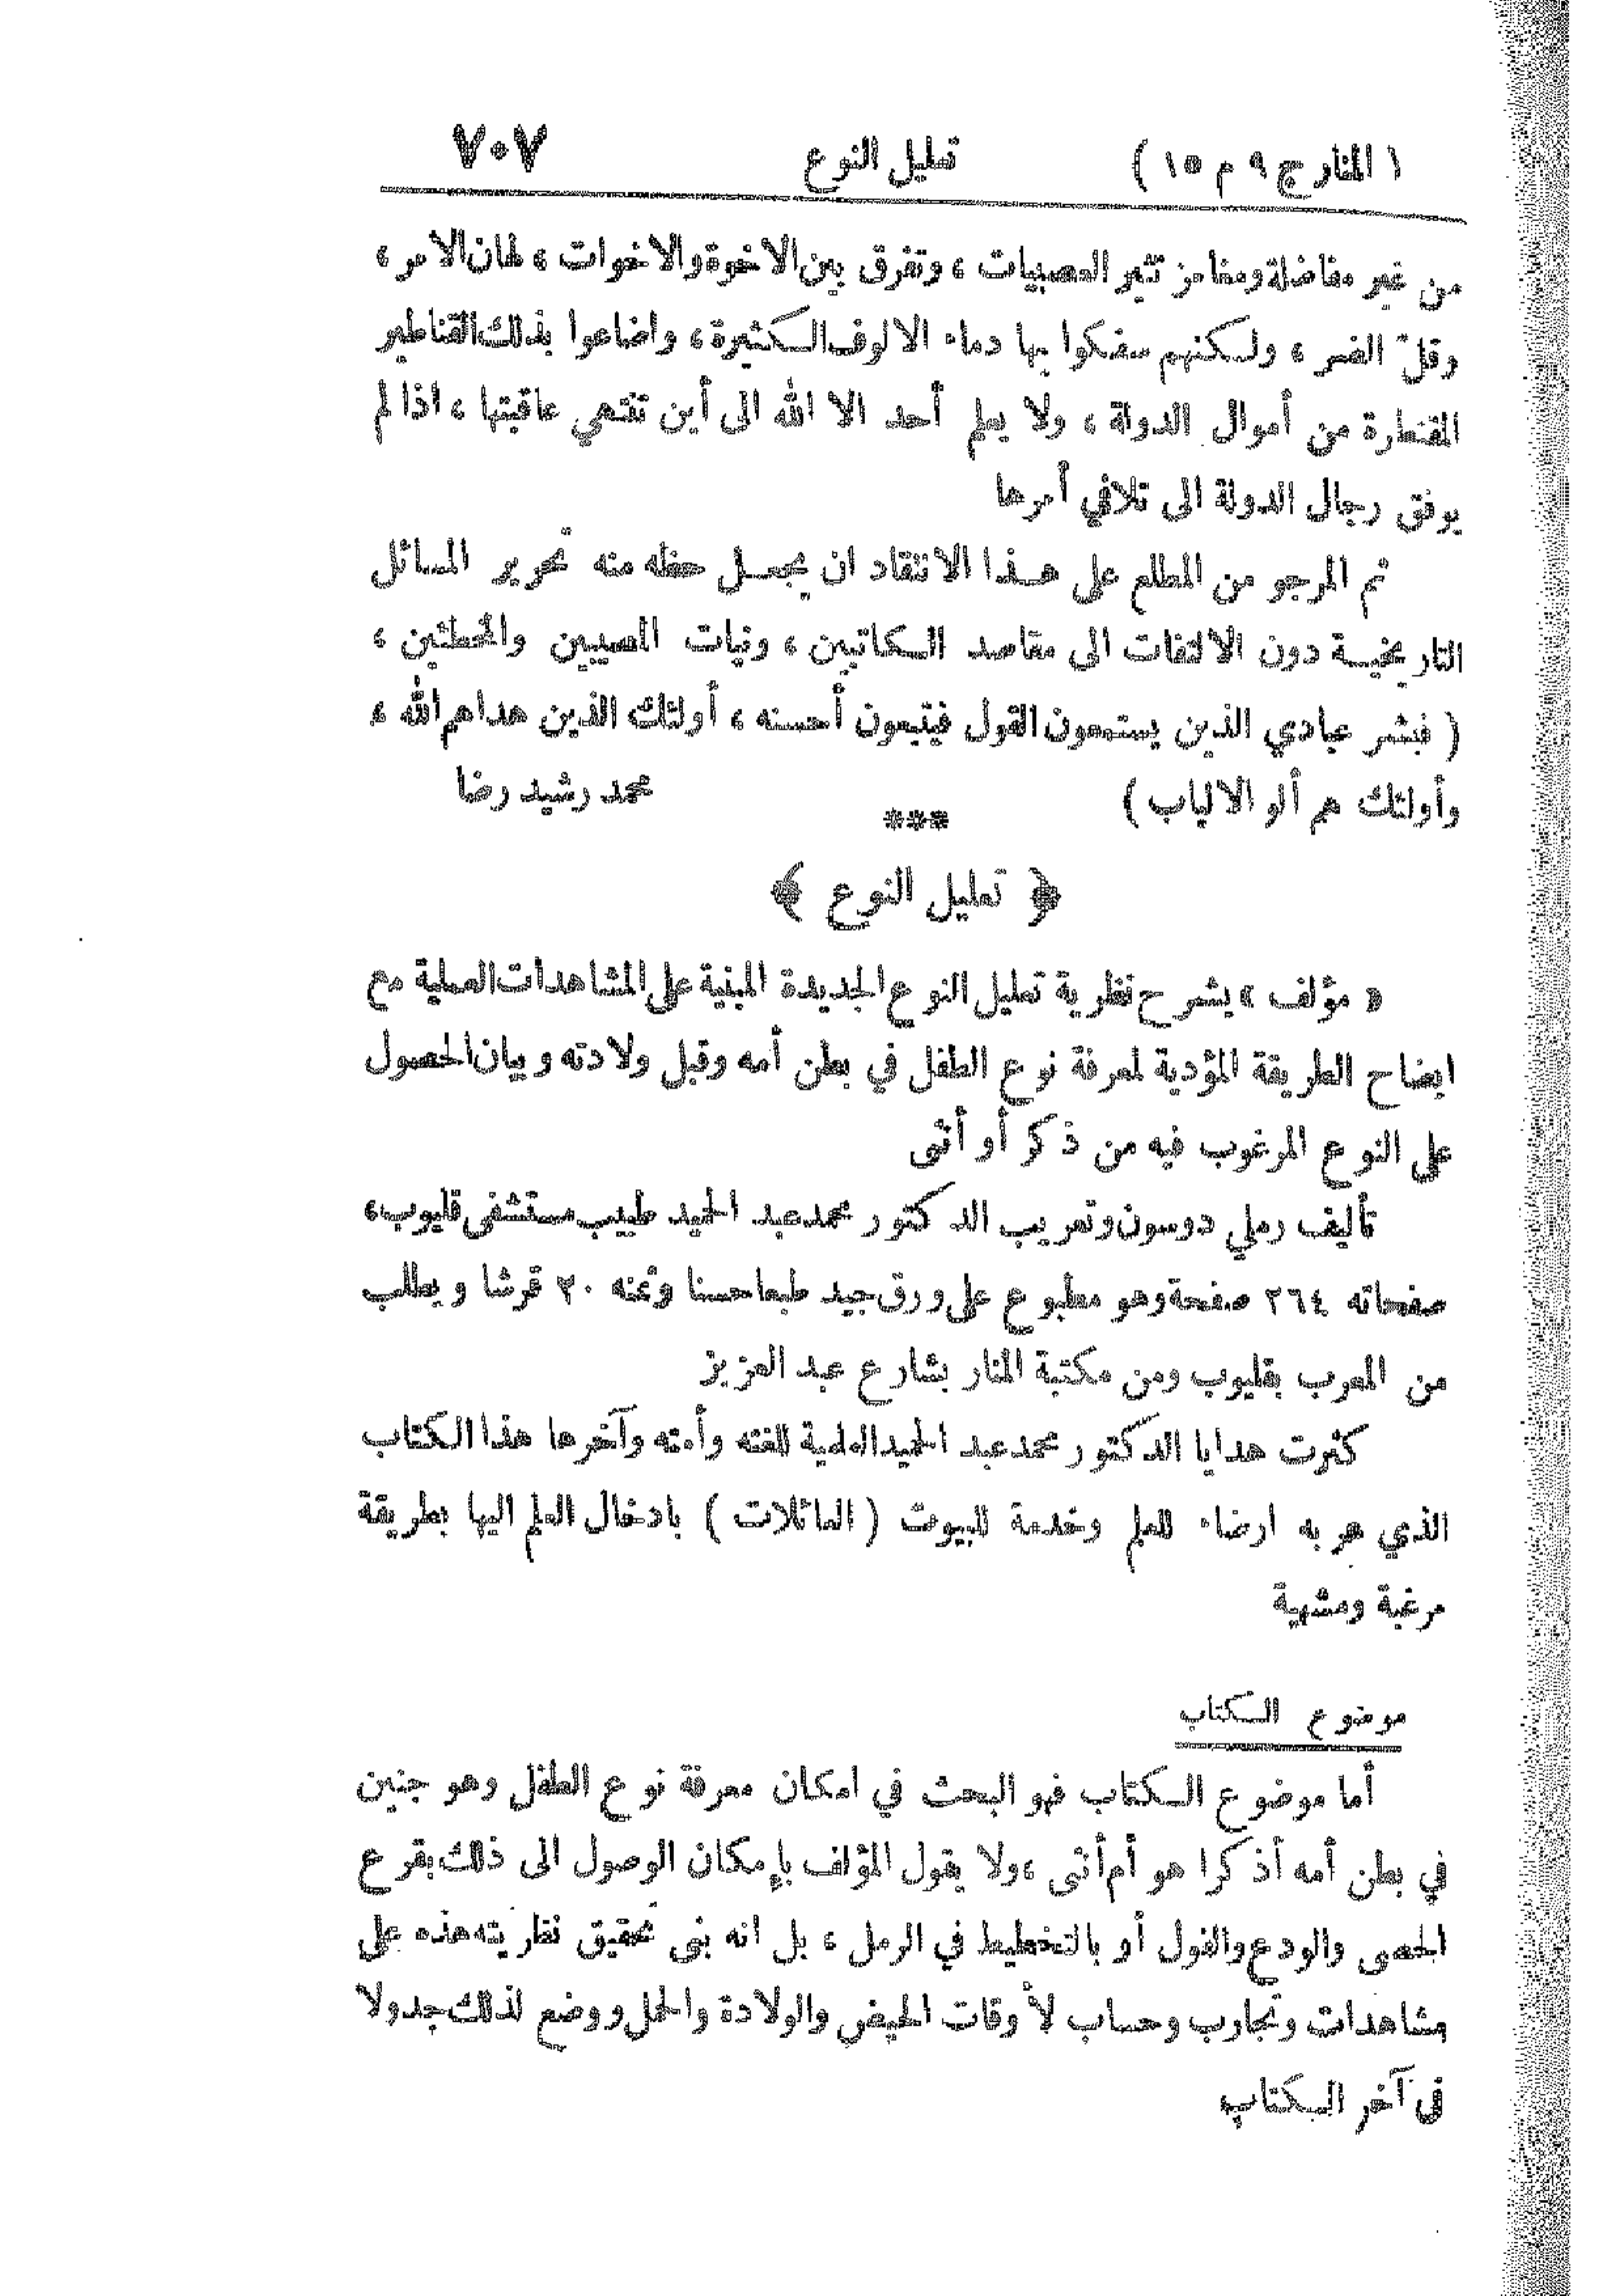 ( المنار ج ٩ م ١٥ ) تعليل النوع ٧٠٧
من غير مفاضلة ومغامز تثير العصبيات ، وتفرق بين الاخوة والاخوات ، لهان الامر ،
وقلّ الضر ، ولكنهم سفكوا بها دماء الالوف الكثيرة ، واضاعوا بذلك القناطير
المقنطرة من أموال الدولة ، ولا يعلم أحد الا الله الى أين تنتهي عاقبتها ، اذا لم
يوفق رجال الدولة الى تلافي أمرها
ثم المرجو من المطلع على هذا الانتقاد ان يجعل حظه منه تحرير المسائل
التاريخية دون الالتفات الى مقاصد الكاتبين ، ونيات المصيبين والمخطئين ،
( فبشر عبادي الذين يستمعون القول فيتبعون أحسنه ، أولئك الذين هداهم الله ،
وأولئك هم ألو الالباب ) محمد رشيد رضا
***
﴿ تعليل النوع ﴾
« مؤلف » يشرح نظرية تعليل النوع الجديدة المبنية على المشاهدات العملية مع
ايضاح الطريقة المؤدية لمعرفة نوع الطفل في بطن أمه وقبل ولادته وبيان الحصول
على النوع المرغوب فيه من ذكر أو أنثى
تأليف رملي دوسون وتعريب الدكتور محمد عبد الحميد طبيب مستشفى قليوب ،
صفحاته ٢٦٤ صفحة وهو مطبوع على ورق جيد طبعا حسنا وثمنه ٢٠ قرشا ويطلب
من المعرب بقليوب ومن مكتبة المنار بشارع عبد العزيز
كثرت هدايا الدكتور محمد عبد الحميد العلمية للغته وأمته وآخرها هذا الكتاب
الذي عربه ارضاء للعلم وخدمة للبيوت ( العائلات ) بادخال العلم اليها بطريقة
مرغبة ومشهية
موضوع الكتاب
أما موضوع الكتاب فهو البحث في امكان معرفة نوع الطفل وهو جنين
في بطن أمه أذكرا هو أم أنثى ، ولا يقول المؤلف بإمكان الوصول الى ذلك بقرع
الحصى والودع والفول أو بالتخطيط في الرمل ، بل انه بنى تحقيق نظريته هذه على
مشاهدات وتجارب وحساب لأوقات الحيض والولادة والحمل ووضع لذلك جدولا
في آخر الكتاب